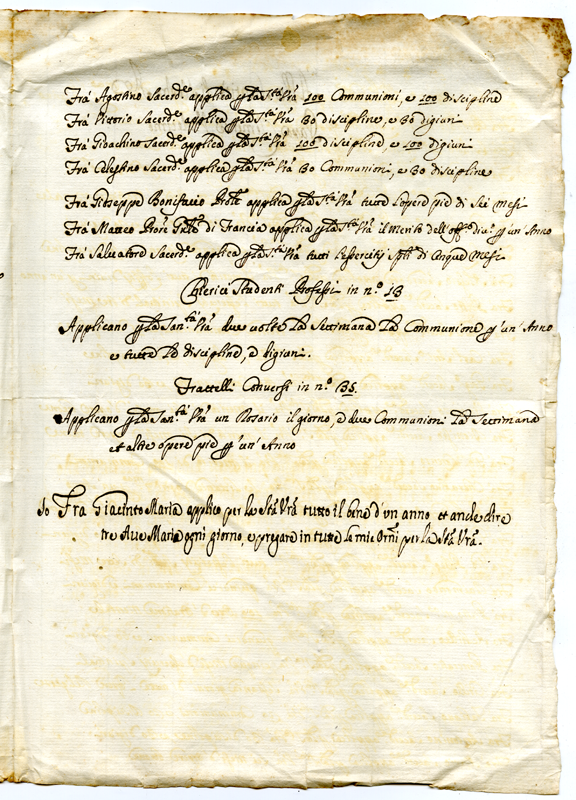 Fra' Agostino Sacerd.e applica p la S.tà Vrà 100 Communioni, e 100 discipline
Fra' Vittorio Sacerd.e applica p la S.tà Vrà 30 discipline, e 30 digiuni
Fra' Gioachino Sacerd.e applica p la S.tà Vrà 100 discipline e 100 digiuni
Fra' Celestino Sacerd.e applica p la S.tà Vrà 30 Communioni, e 30 discipline
Fra' Giuseppe Bonifacio applica p la S.tà Vrà tutte l'opere pie di sei mesi
Fra' Matteo di Francia applica p la S.tà Vrà il Merito dell'off.o div.o p un Anno
Fra' Salvatore Sacerd.e applica p la S.tà Vrà tutti l'essercitij sp.li di cinque mesi
Chierici Studenti Professi in n.o 13
Applicano p la San.tà Vrà due volte la Settimana la Communione p un' Anno
e tutte le discipline, e digiuni.
Frattelli Conversi in n.o 35.
Applicano p la San.tà Vrà un Rosario il giorno, e due Communioni la Settimana
et altre opere pie p un' Anno
Io Fra Giacinto Maria applico per la Stà Vrà tutto il bene d'un anno et anche dire
tre Ave Maria ogni giorno, e pregare in tutte le mie Orni per la Stà Vrà.